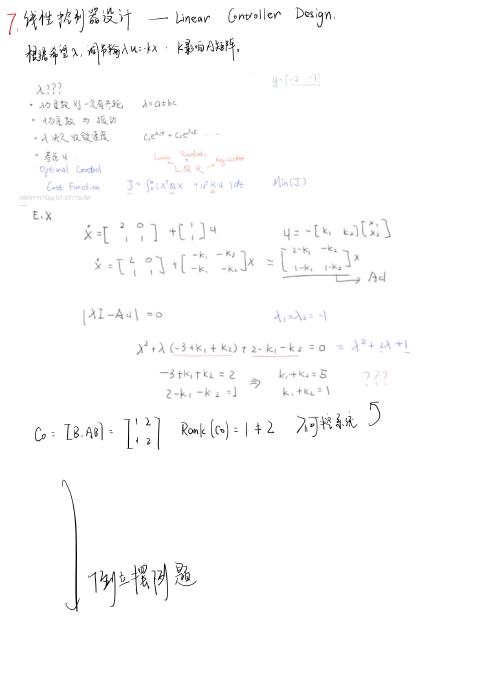 7. 线性控制器设计 — Linear Controller Design.
根据希望λ, 调节输入u=-kx. k影响A矩阵。
y=[-2 -3]
λ???
· λ为复数 则一定有共轭 λ=a±bi
· λ为复数 ⇒ 振动
· λ决定收敛速度 C₁e^λ₁t + C₂e^λ₂t ····
· 考虑u
Linear Quadratic Regulator
Optimal Control L Q R
Cost Function J=∫₀^∞(xᵀQx + uᵀRu)dt Min(J)
Ex
ẋ=[2 0; 1 1] + [1; 1]u u=-[k₁ k₂][x₁; x₂]
ẋ=[2 0; 1 1] + [-k₁ -k₂; -k₁ -k₂]x = [2-k₁ -k₂; 1-k₁ 1-k₂]x
Acl
|λI-Acl|=0 λ₁=λ₂=-1
λ²+λ(-3+k₁+k₂)+2-k₁-k₂=0 = λ²+2λ+1
-3+k₁+k₂=2 ⇒ k₁+k₂=5 ???
2-k₁-k₂=1 k₁+k₂=1
Co=[B.AB]=[1 2; 1 2] Rank(Co)=1≠2 不可控系统
倒立摆例题